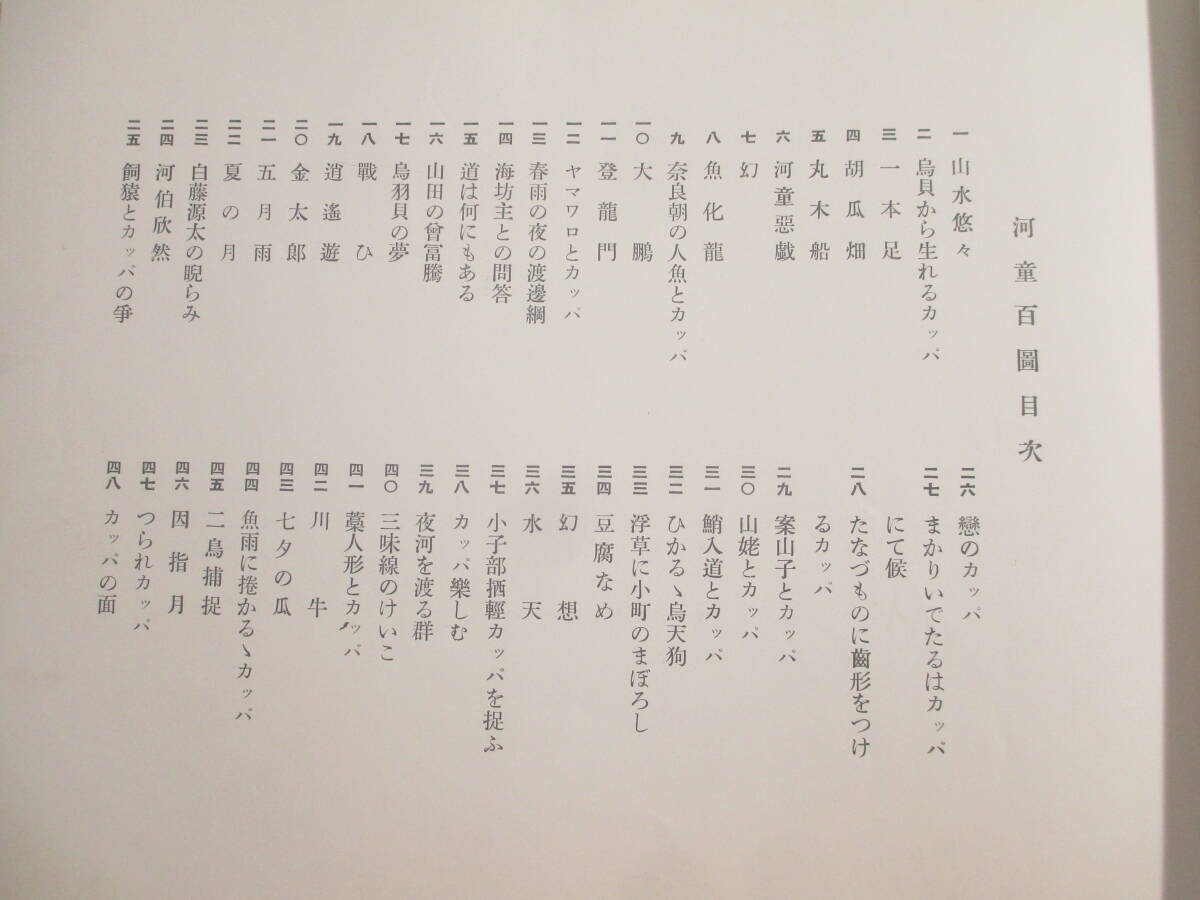 河童百圖目次
一 山水悠々
二 烏貝から生れるカッパ
三 一本足
四 胡瓜畑
五 丸木船
六 河童惡戲
七 幻
八 魚化龍
九 奈良朝の人魚とカッパ
一〇 大鵬
一一 登龍門
一二 ヤマワロとカッパ
一三 春雨の夜の渡邊綱
一四 海坊主との問答
一五 道は何にもある
一六 山田の曾富騰
一七 烏羽貝の夢
一八 戰ひ
一九 逍遙遊
二〇 金太郎
二一 五月雨
二二 夏の月
二三 白藤源太の睨らみ
二四 河伯欣然
二五 飼猿とカッパの爭
二六 戀のカッパ
二七 まかりいでたるはカッパ
にて候
二八 たなづものに齒形をつけ
るカッパ
二九 案山子とカッパ
三〇 山姥とカッパ
三一 鮹入道とカッパ
三二 ひかるゝ烏天狗
三三 浮草に小町のまぼろし
三四 豆腐なめ
三五 幻想
三六 水天
三七 小子部栖輕カッパを捉ふ
三八 カッパ樂しむ
三九 夜河を渡る群
四〇 三味線のけいこ
四一 藁人形とカッパ
四二 川牛
四三 七夕の瓜
四四 魚雨に捲かるゝカッパ
四五 二鳥捕捉
四六 因指月
四七 つられカッパ
四八 カッパの面